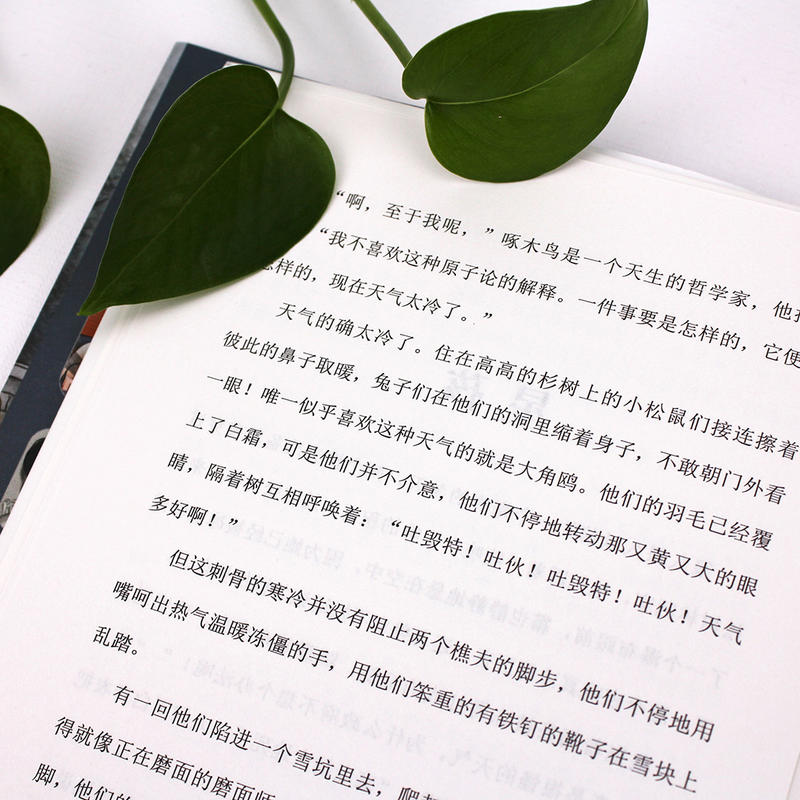 “啊，至于我呢，”啄木鸟是一个天生的哲学家，他
“我不喜欢这种原子论的解释。一件事要是怎样的，它便
怎样的，现在天气太冷了。”
天气的确太冷了。住在高高的杉树上的小松鼠们接连擦着
彼此的鼻子取暖，兔子们在他们的洞里缩着身子，不敢朝门外看
一眼！唯一似乎喜欢这种天气的就是大角鸱。他们的羽毛已经覆
上了白霜，可是他们并不介意，他们不停地转动那又黄又大的眼
睛，隔着树互相呼唤着：“吐毁特！吐伙！吐毁特！吐伙！天气
多好啊！”
但这刺骨的寒冷并没有阻止两个樵夫的脚步，他们不停地用
嘴呵出热气温暖冻僵的手，用他们笨重的有铁钉的靴子在雪块上
乱踏。
有一回他们陷进一个雪坑里去，爬
得就像正在磨面的磨面师
脚，他们的